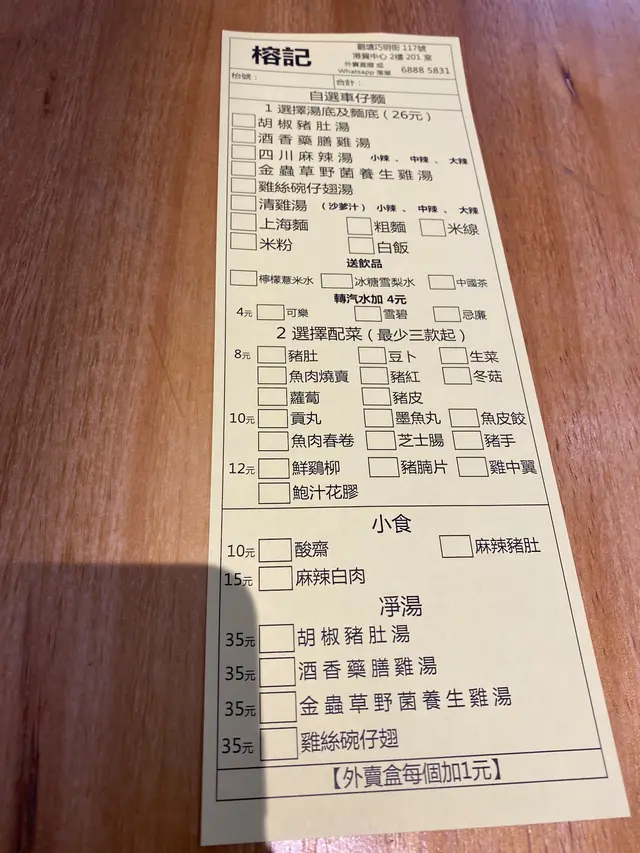 榕記
觀塘巧明街 117號
港貿中心 2樓 201 室
外賣直撥 或
Whatsapp 落單 6888 5831
枱號： 合計：
自選車仔麵
1 選擇湯底及麵底 (26元)
胡椒豬肚湯
酒香藥膳雞湯
四川麻辣湯 小辣 、 中辣 、 大辣
金蟲草野菌養生雞湯
雞絲碗仔翅湯
清雞湯 (沙爹汁) 小辣 、 中辣 、 大辣
上海麵 粗麵 米線
米粉 白飯
送飲品
檸檬薏米水 冰糖雪梨水 中國茶
轉汽水加 4元
4元 可樂 雪碧 忌廉
2 選擇配菜 (最少三款起)
8元 豬肚 豆卜 生菜
魚肉燒賣 豬紅 冬菇
蘿蔔 豬皮
10元 貢丸 墨魚丸 魚皮餃
魚肉春卷 芝士腸 豬手
12元 鮮鷄柳 豬腩片 雞中翼
鮑汁花膠
小食
10元 酸齋 麻辣豬肚
15元 麻辣白肉
凈湯
35元 胡椒豬肚湯
35元 酒香藥膳雞湯
35元 金蟲草野菌養生雞湯
35元 雞絲碗仔翅
【外賣盒每個加1元】